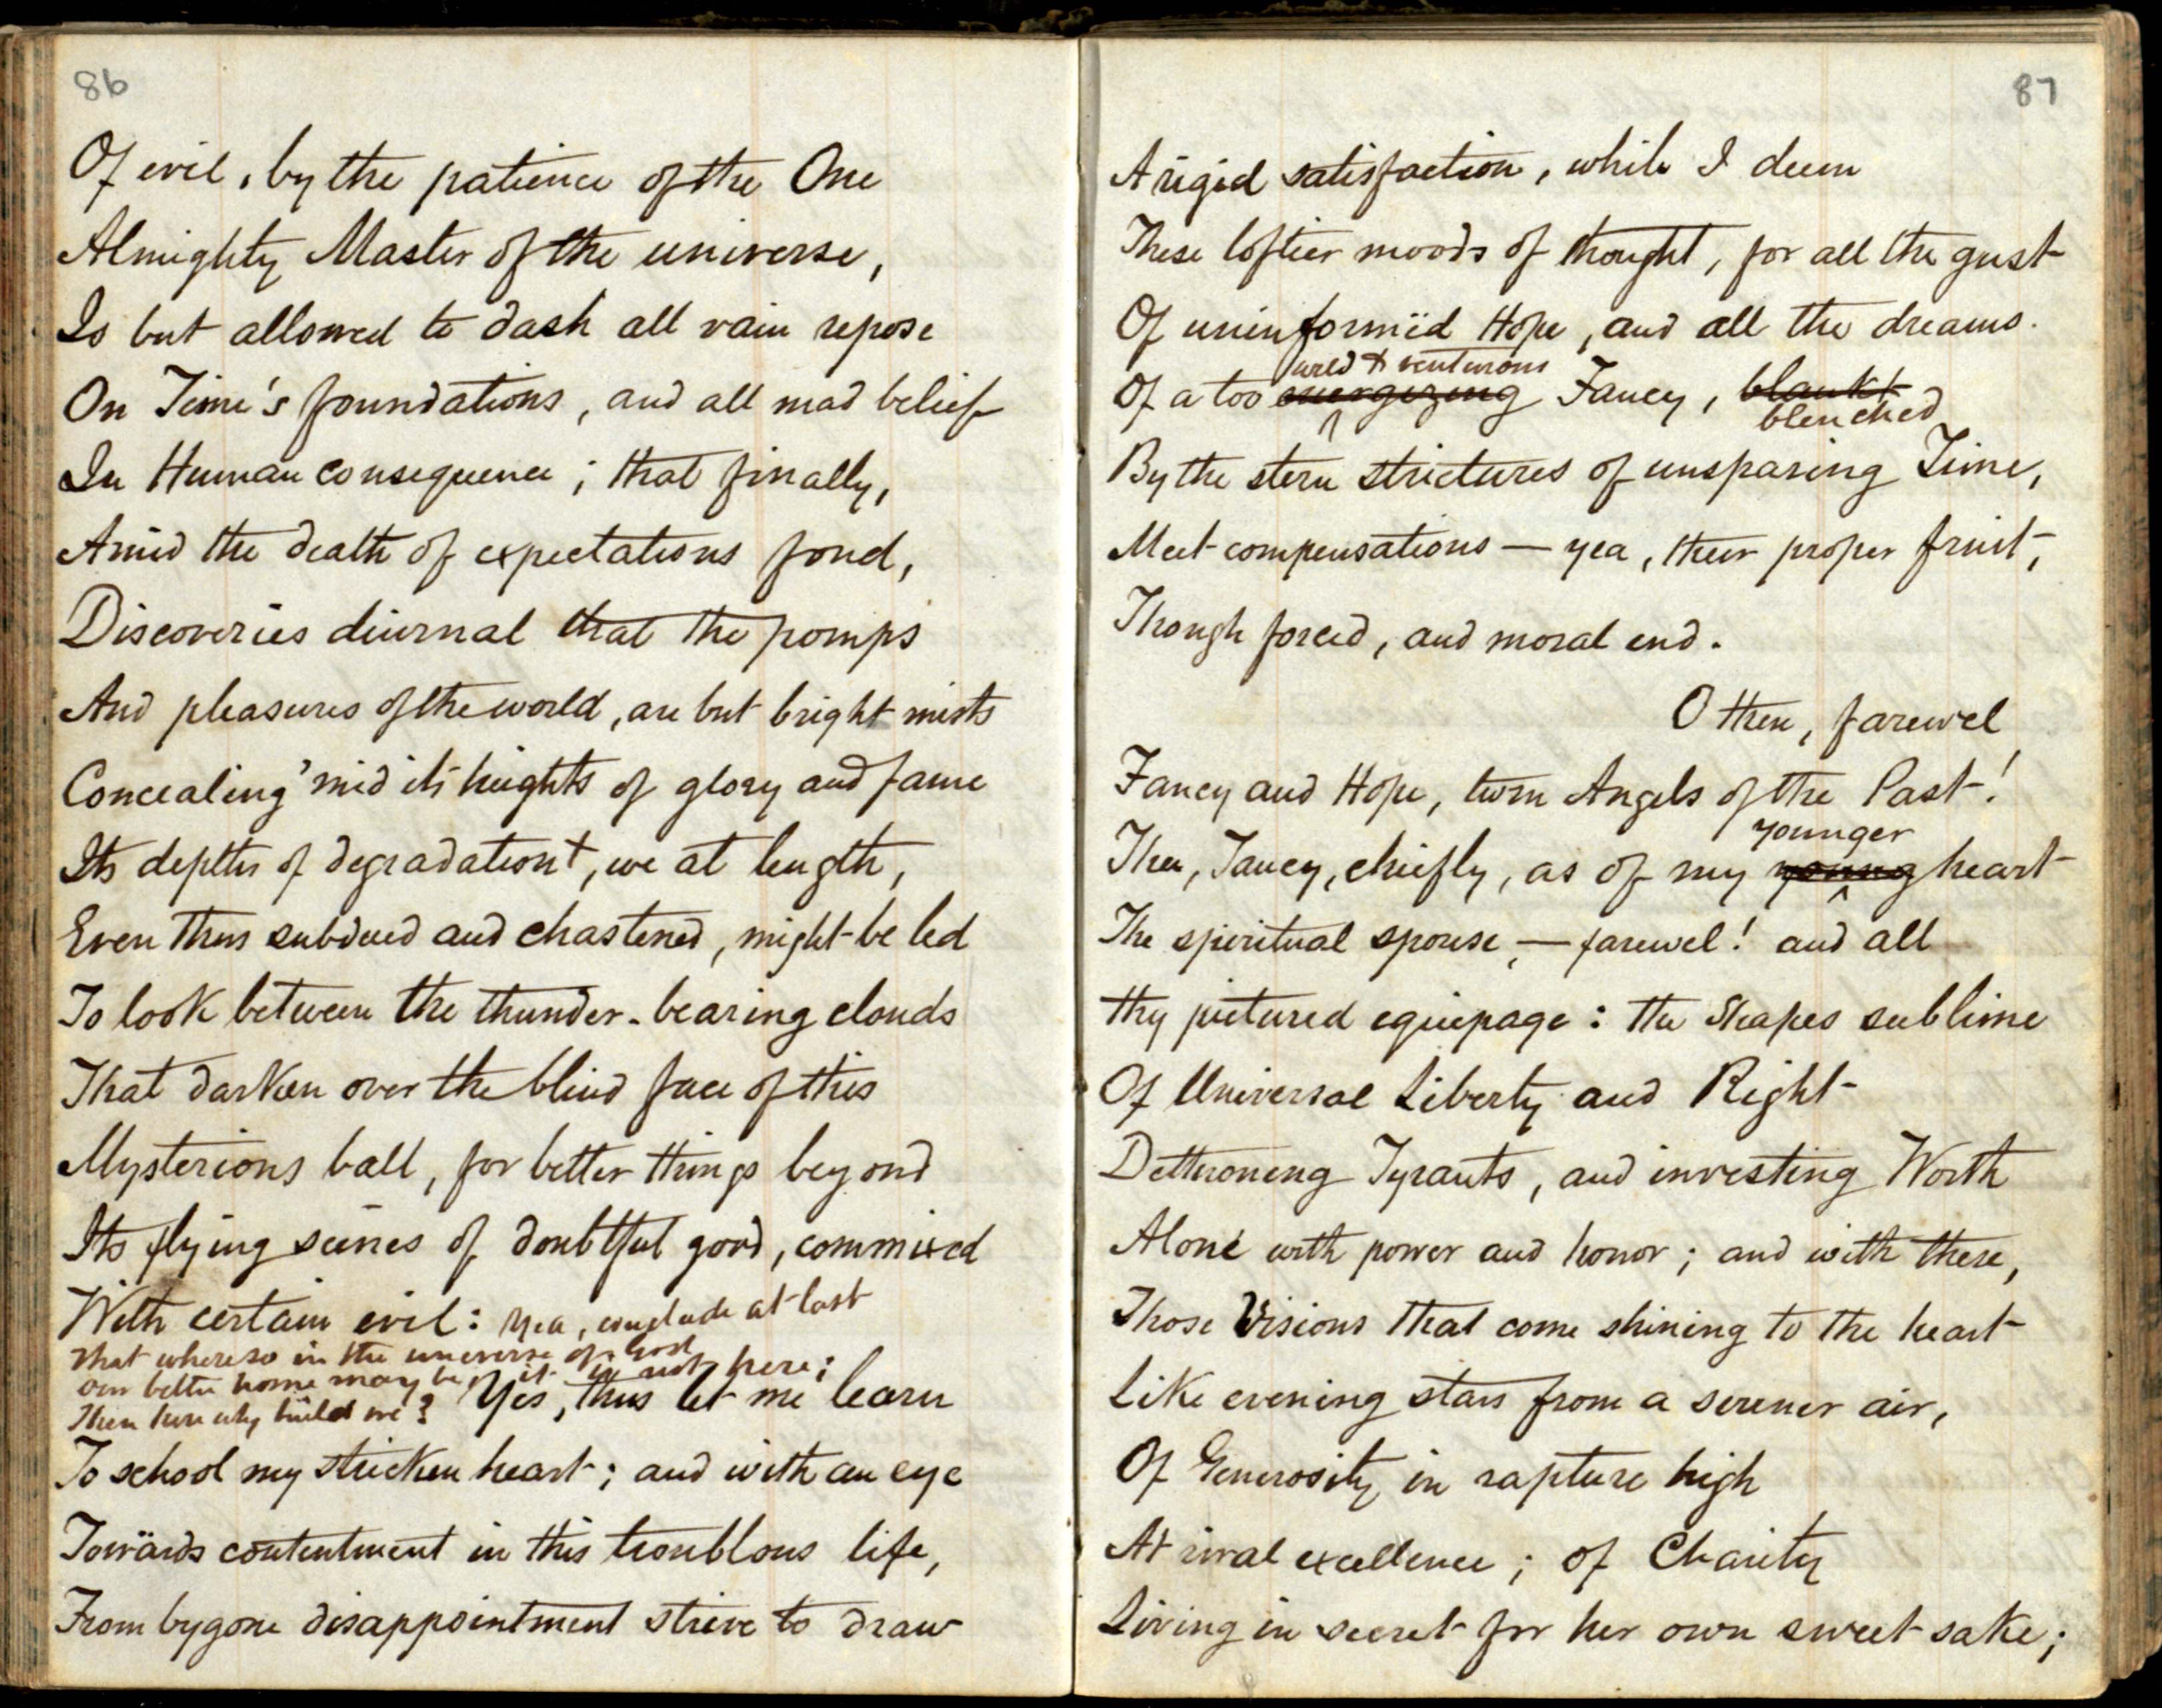 86
Of evil, by the patience of the One
Almighty Master of the universe,
Is but allowed to dash all vain repose
On Time's foundations, and all mad belief
In Human consequence; that finally,
Amid the death of expectations fond,
Discoveries diurnal that the pomps
And pleasures of the world, are but bright mists
Concealing 'mid its heights of glory and fame
Its depths of degradation+, we at length,
Even thus subdued and chastened, might be led
To look between the thunder-bearing clouds
That darken over the blind face of this
Mysterious ball, for better things beyond
Its flying scenes of doubtful good, commixed
With certain evil: Yea, conclude at last
That whereso in the universe of God
Our better home may be, it is not here;
Then here why build we? Yes, thus let me learn
To school my stricken heart; and with an eye
Towärds contentment in this troublous life,
From bygone disappointment strive to draw
87
A rigid satisfaction, while I deem
These loftier moods of thought, for all the gust
Of uninformïd Hope, and all the dreams.
wild & venturous
Of a too energizing Fancy, blankt
blenched
By the stern strictures of unsparing Time,
Meet compensations — yea, their proper fruit,
Though forced, and moral end.
O then, farewel
Fancy and Hope, twin Angels of the Past!
younger
Thou, Fancy, chiefly, as of my young heart
The spiritual spouse, — farewel! and all
thy pictured equipage: the Shapes sublime
Of Universal Liberty and Right
Dethroneng Tyrants, and investing Worth
Alone with power and honor; and with these,
Those Visions that come shining to the heart
Like evening stars from a serener air,
Of Generosity in rapture high
At rival excellence; of Charity
Living in secret for her own sweet sake;